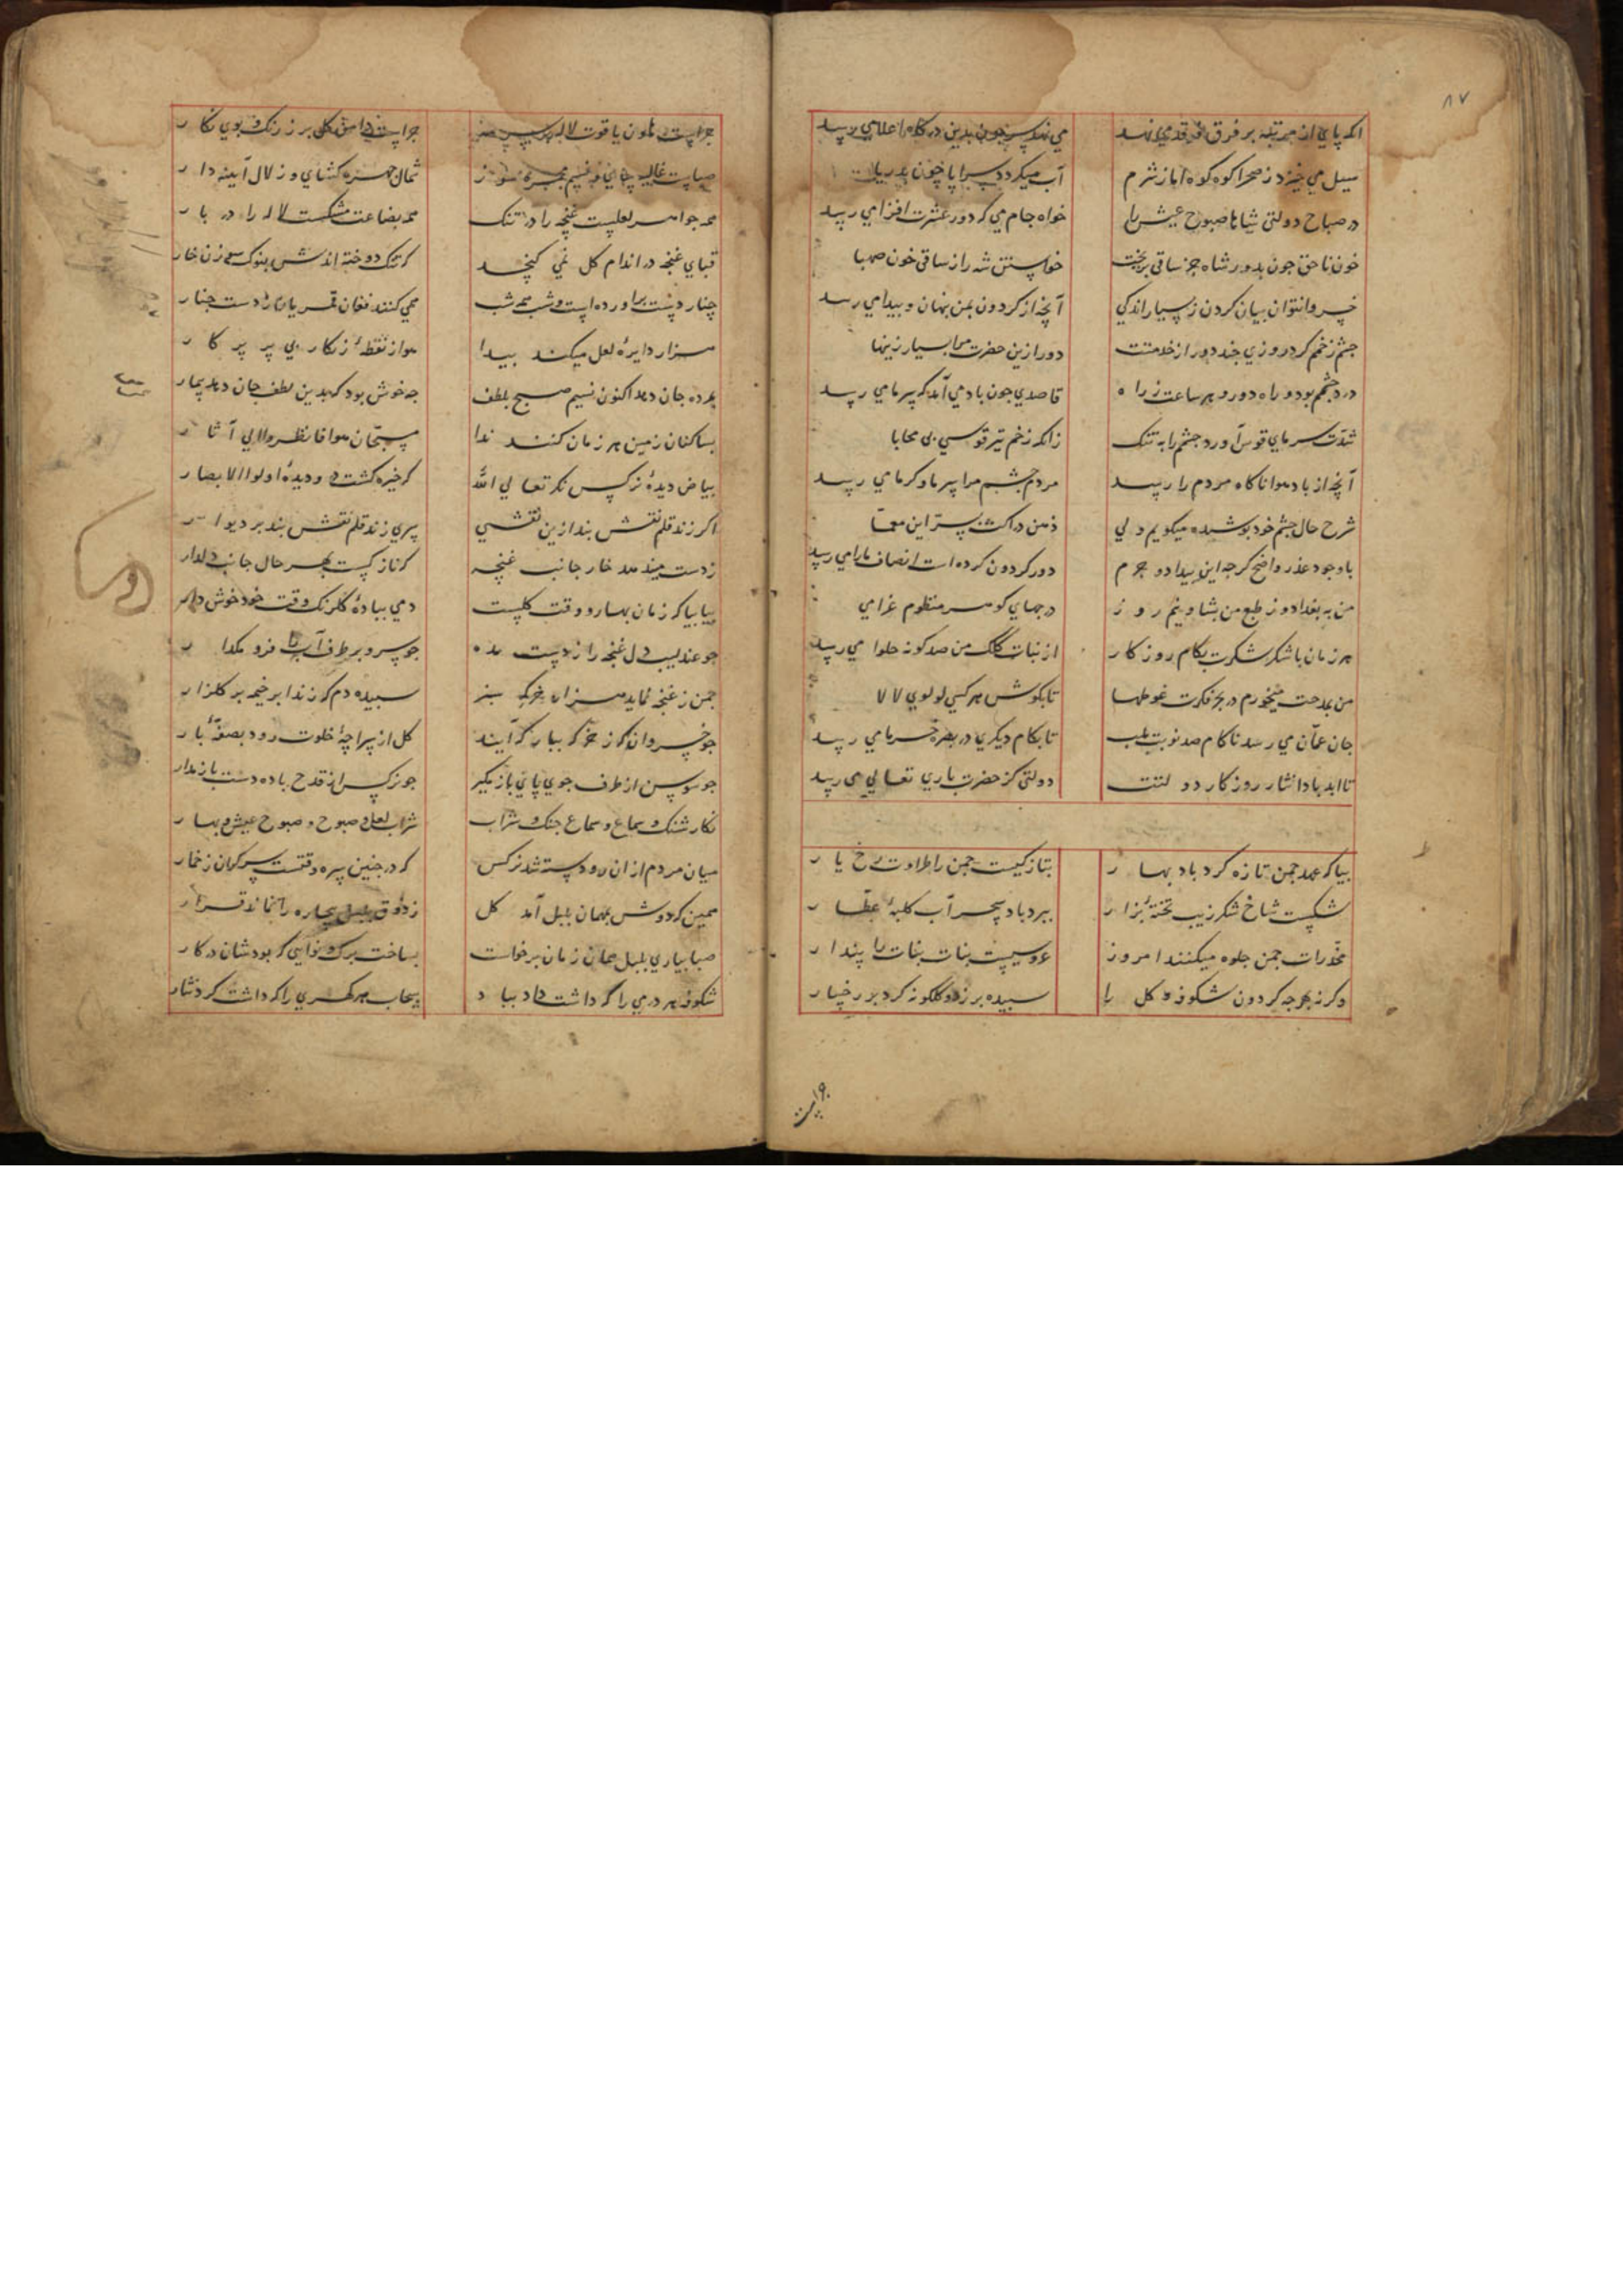 ۸۷
انکه پای از مرتبه بر فرق فرقدمی نهد
می نهد سر چون بدین درگاه اعلا می رسد
سیل می خیزد ز صحرا کوه کوه اما ز شرم
آب میگردد سراپا چون بدریا
در صباح دولتی شاها صبوح عیش را
خواه جام می که دور عشرت افزا می رسد
خون ناحق چون بدور شاه جز ساقی نریخت
خواستن شه را ز ساقی خون صهبا
خسروا نتوان بیان کردن ز بسیار اندکی
آنچه از کردون بمن پنهان و پیدا می رسد
چشم زخم کرد روزی چند دور از خدمتت
دور ازین حضرت مرا بسیار زینها
درد چشم بود و راه دور و هر ساعت ز راه
قاصدی چون باد می آمد که سرما می رسد
شدت سرمای قوس آورد چشمم را به تنک
زانکه زخم تیر قوسی بی محابا
آنچه از باد هوا ناکاه مردم را رسد
مردم چشم مرا سرما و کرما می رسد
شرح حال چشم خود پوشیده میکویم ولی
ذهن دراکت بسر این معما
با وجود عذر واضح کرچه این بیداد و جرم
دور کردون کرده است انصاف ما را می رسد
من به بغداد و ز طبع من بشاه نیمروز
درجهای کوهر منظوم غرا می
هر زمان با شکر شکرت بکام روزکار
از نبات کلک من صد کونه حلوا می رسد
من بمدحت میخورم در بحر فکرت غوطها
تا بکوش هر کسی لولوی لالا
جان عمان می رسد ناکام صد نوبت بلب
تا بکام دیکری در بصره خرما می رسد
تا ابد بادا نثار روزکار دولتت
دولتی کز حضرت باری تعالی می رسد
بیا که عهد چمن تازه کرد باد بهار
بتازکیست چمن را طراوت رخ یار
شکست شاخ شکر زیب تختهٔ بزار
ببرد باد سحر آب کلبهٔ عطار
مخدرات چمن جلوه میکنند امروز
عروسیست بنات نبات را پندار
وکرنه بهر چه کردون شکوفه و کل را
سپیده برزد و کلکونه کرد بر رخسار
۱۹
چراست هاون یاقوت لاله
چراست دامن کل پر ز رنک و بوی نکار
صباست غالیه سای و نسیم مجمره سوز
شمال چهره کشای و زلال آینه دار
همه جواهر لعلیست غنچه را در تنک
همه بضاعت مشکست لاله را در بار
قبای غنچه در اندام کل نمی کنجد
که تنک دوخته اندش بنوک سوزن خار
چنار دست براورده است و شب همه شب
همی کنند فغان قمریان ز دست چنار
هزار دایره لعل میکند پیدا
هوا ز نقطهٔ زنکار بی پرکار
بمرده جان دهد اکنون نسیم صبح بلطف
چه خوش بود که بدین لطف جان دهد بیمار
بساکنان زمین هر زمان کنند ندا
مسبحان هوا فانظروا الی آثار
بیاض دیدهٔ نرکس نکر تعالی الله
که خیره کشت درو دیدهٔ اولوا الابصار
اکر زند قلم نقش بند ازین نقشی
پری زند قلم نقش بند بر دیوار
ز دست میندهد خار جانب غنچه
که نازکست بهر حال جانب دلدار
بیا بیا که زمان بهار و وقت کلست
دمی بباده کلرنک وقت خود خوش دار
چو عندلیب دل غنجه را ز دست مده
چو سرو بر طرف آب پا فرو مکذار
چمن ز غنجه نماید هزار خرکه سبز
سپیده دم که زند ابر خیمه بر کلزار
چو خسروان کر از خرکه ببار که آیند
کل از سراچهٔ خلوت رود بصفهٔ بار
چو سوسن از طرف جوی پای بازمکیر
چو نرکس از قدح باده دست باز مدار
نکار شنک و سماع و سماع چنک و شراب
شراب لعل و صبوح و صبوح عیش و بهار
میان مردم از آن رو دسته شد نرکس
که در چنین سره وقتست سرکران ز خمار
همین که دوش بمهمان بلبل آمد کل
ز ذوق بلبل بیچاره را نماند قرار
صبا بیاری بلبل همان زمان برخاست
بساخت برک و نوایی که بودشان در کار
شکوفه هر درمی را که داشت داد بباد
سحاب هر کهری را که داشت کرد نثار